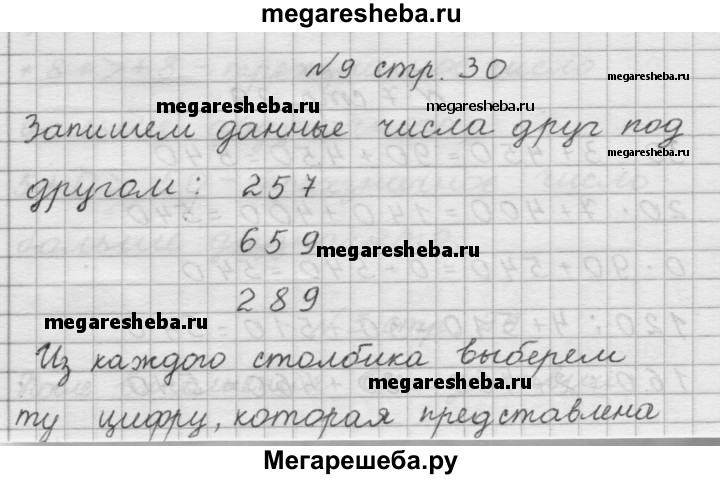 megaresheba.ru
№9 стр. 30
megaresheba.ru
megaresheba.ru
Запишем данные числа друг под
megaresheba.ru
другом: 257
659
megaresheba.ru
289
megaresheba.ru
Из каждого столбика выберем
megaresheba.ru
ту цифру, которая представлена
Мегарешеба.ру